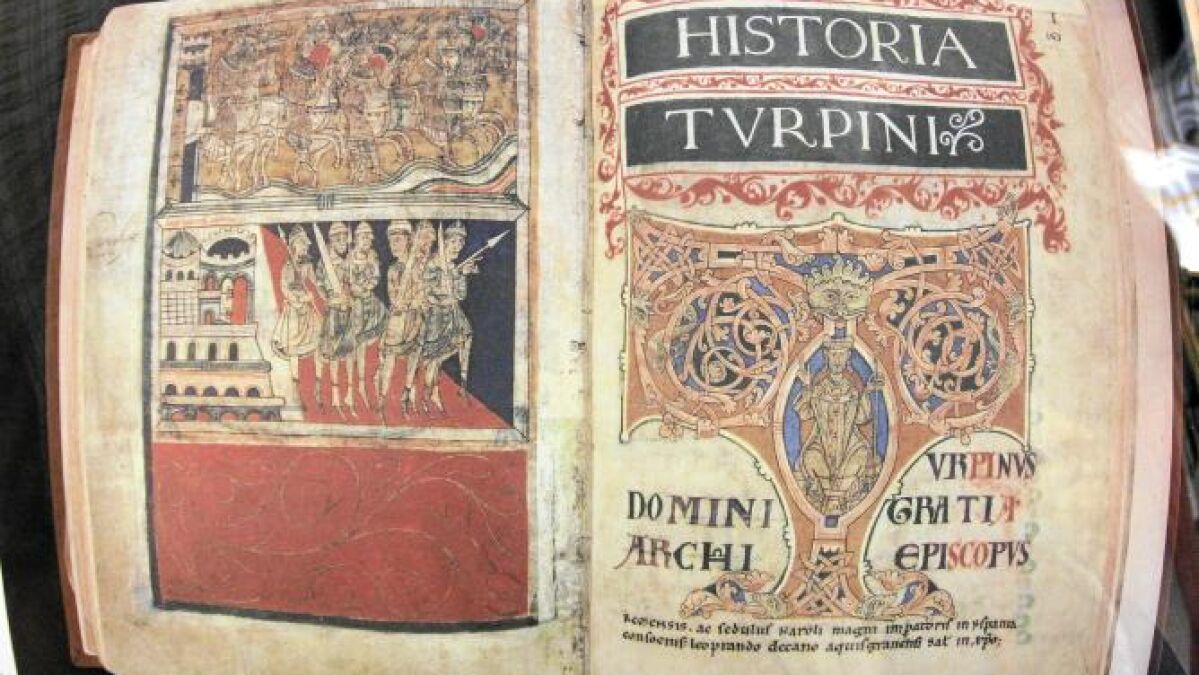 HISTORIA
TVRPINI
VRPINVS
DOMINI GRATIA
ARCHI EPISCOPVS
REMENSIS. ac sedulus Karoli magni impatoris in yspania
consocius leoprando decano aquisgranensi salt in xpo;